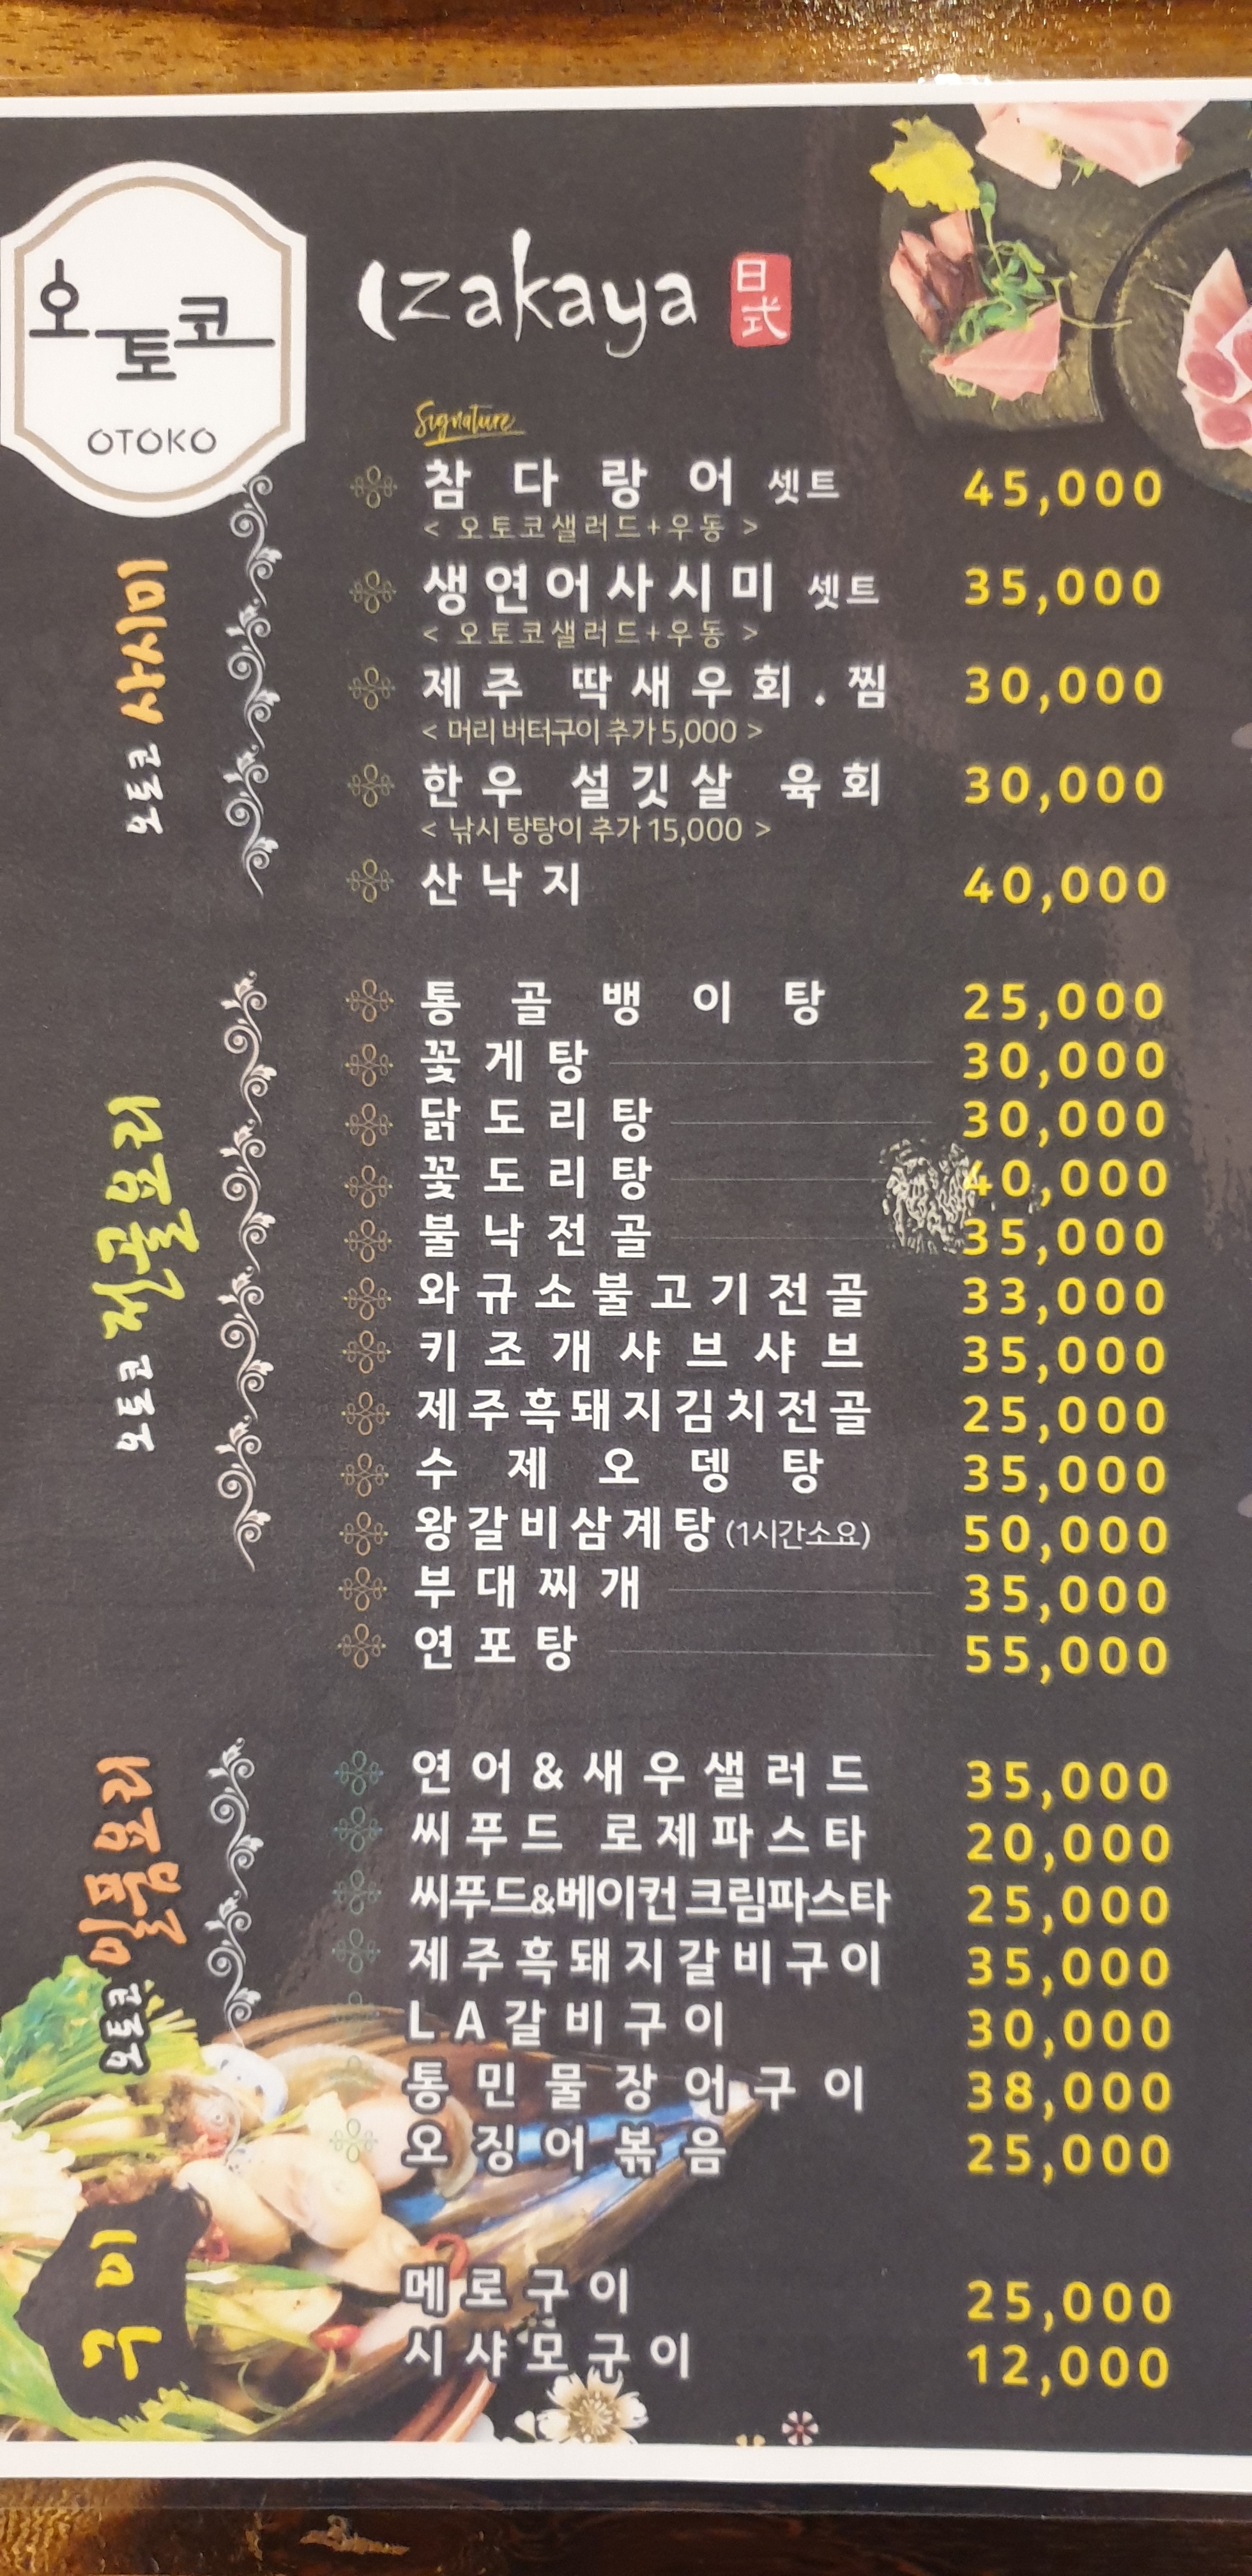 오토코
OTOKO
izakaya 日式
Signature
오토코 사시미
참다랑어 셋트 45,000
< 오토코샐러드+우동 >
생연어사시미 셋트 35,000
< 오토코샐러드+우동 >
제주 딱새우회.찜 30,000
< 머리 버터구이 추가 5,000 >
한우 설깃살 육회 30,000
< 낚시 탕탕이 추가 15,000 >
산낙지 40,000
오토코 전골요리
통골뱅이탕 25,000
꽃게탕 30,000
닭도리탕 30,000
꽃도리탕 40,000
불낙전골 35,000
와규소불고기전골 33,000
키조개샤브샤브 35,000
제주흑돼지김치전골 25,000
수제오뎅탕 35,000
왕갈비삼계탕 (1시간소요) 50,000
부대찌개 35,000
연포탕 55,000
오토코 일품요리
연어&새우샐러드 35,000
씨푸드 로제파스타 20,000
씨푸드&베이컨 크림파스타 25,000
제주흑돼지갈비구이 35,000
LA갈비구이 30,000
통민물장어구이 38,000
오징어볶음 25,000
구이
메로구이 25,000
시샤모구이 12,000